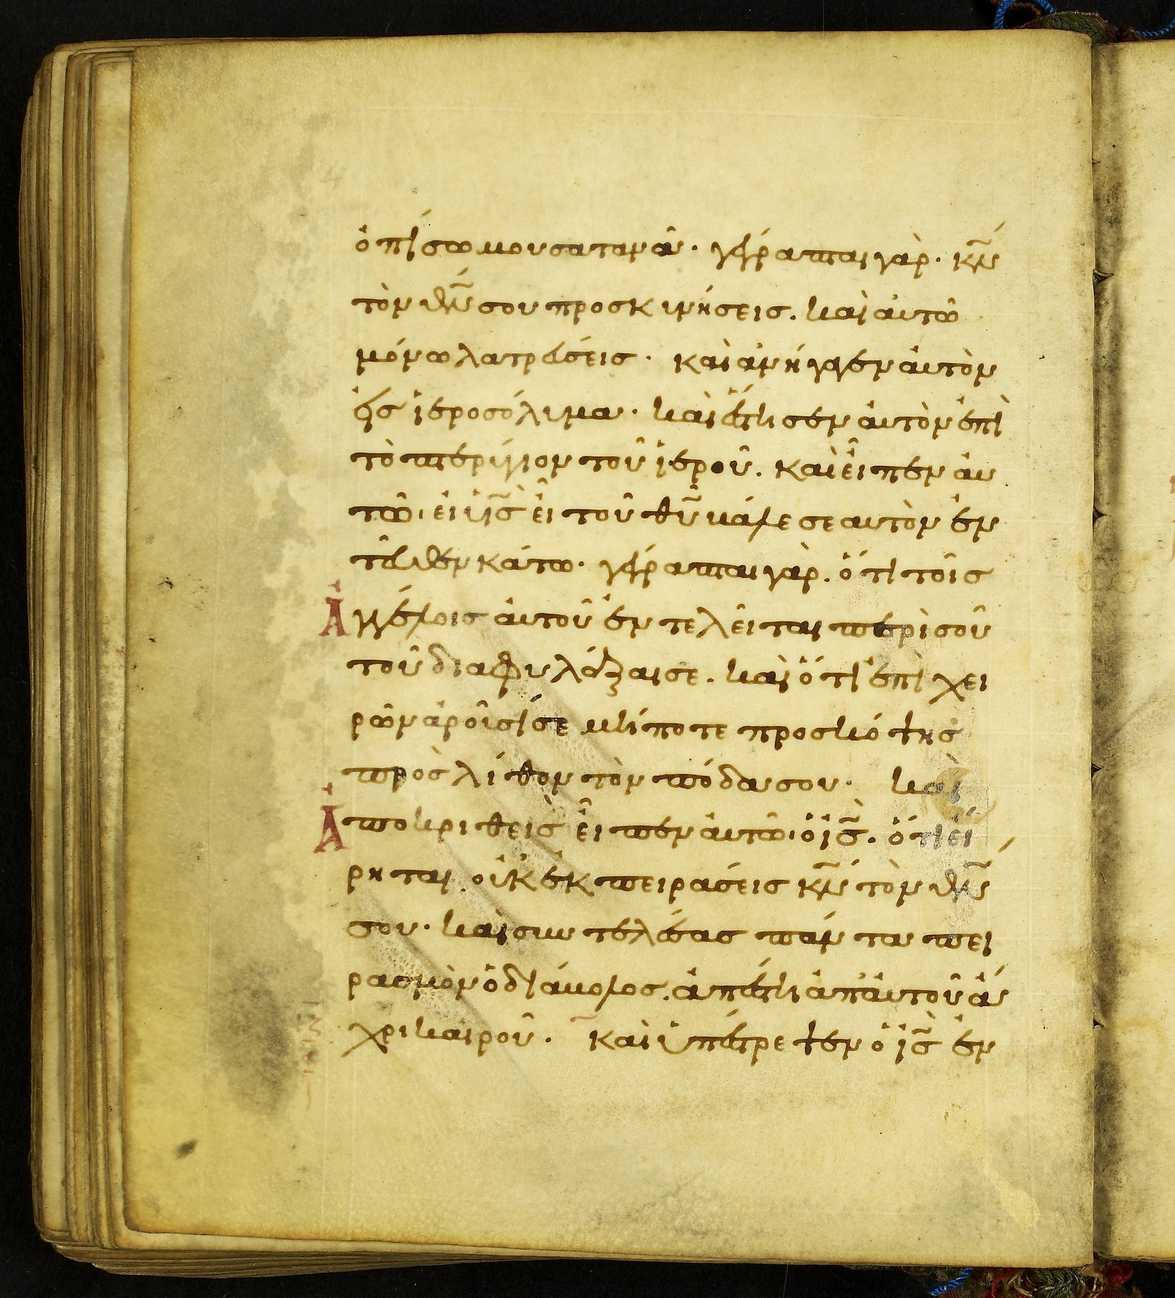 ὀπίσω μου σατανᾶ· γέγραπται γάρ· κν̅
τὸν θν̅ σου προσκυνήσεις. καὶ αὐτῶ
μόνω λατρεύσεις· καὶ ἀνήγαγεν αὐτὸν
εἰς ἱεροσόλυμα· καὶ ἔστησεν αὐτὸν ἐπὶ
τὸ πτερύγιον τοῦ ἱεροῦ. καὶ εἶπεν αὐ
τῶ· εἰ υἱς̅ εἶ τοῦ θυ̅ βάλε σεαυτὸν ἐν
τεῦθεν κάτω· γέγραπται γάρ. ὅτι τοῖς
Ἀγγέλοις αὐτοῦ ἐντελεῖται περὶ σοῦ
τοῦ διαφυλάξαι σε. καὶ ὅτι ἐπὶ χει
ρῶν ἀροῦσί σε μήποτε προσκόψης
πρὸς λίθον τὸν πόδα σου· καὶ
Ἀποκριθεὶς εἶπεν αὐτῶ· ὁ ις̅. ὅτι εἴ
ρηται οὐκ ἐκπειράσεις κν̅ τὸν θν̅
σου· καὶ συντελέσας πάντα πει
ρασμὸν ὁ διάβολος. ἀπέστη ἀπ αὐτοῦ ἄ
χρι καιροῦ. καὶ ὑπέστρεψεν ὁ ις̅ ἐν